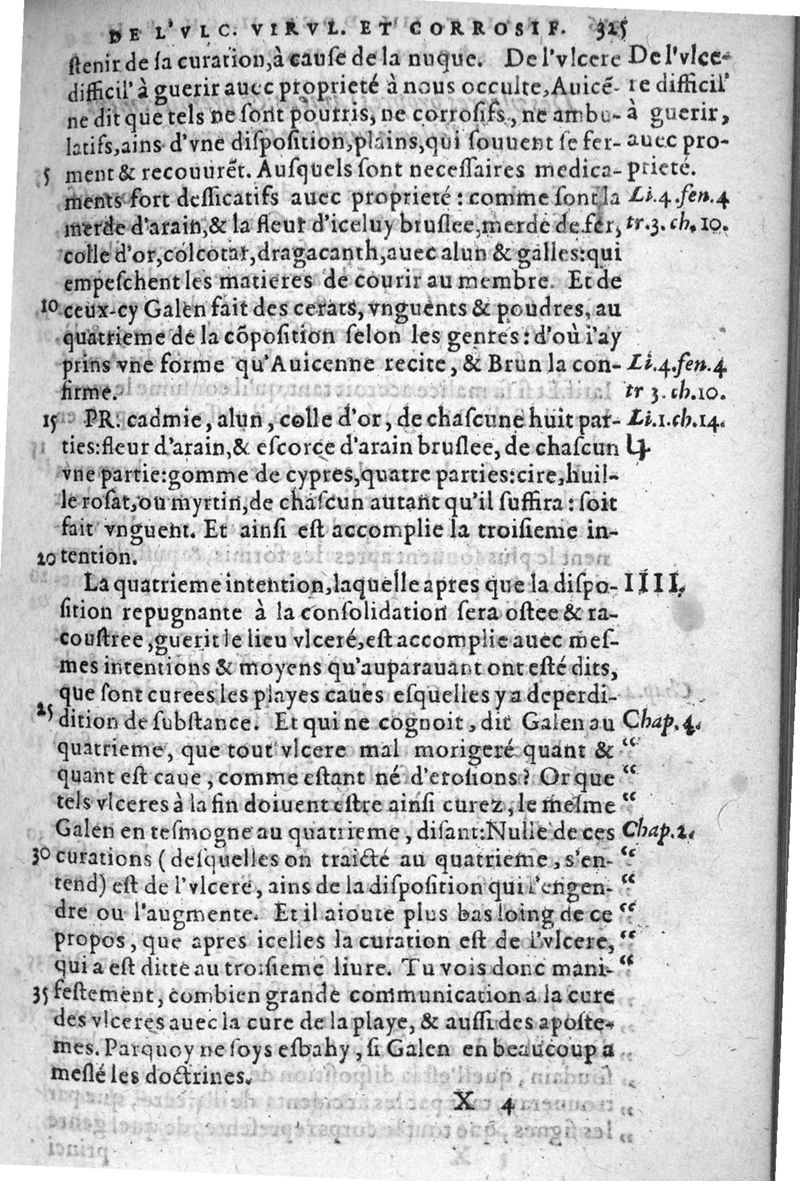 DE L'VLC. VIRVL. ET CORROSIF. 325
ſtenir de ſa curation, à cauſe de la nuque. De l'vlcere De l'vlce-
difficil' à guerir auec proprieté à nous occulte, Auicē- re difficil'
ne dit que tels ne ſont pourris, ne corroſifs, ne ambu- à guerir,
latifs, ains d'vne diſpoſition, plains, qui ſouuent ſe fer- auec pro-
5 ment & recouurēt. Auſquels ſont neceſſaires medica- prieté.
ments fort deſſicatifs auec proprieté : comme ſont la Li.4.fen.4
merde d'arain, & la fleur d'iceluy bruſlee, merde de fer, tr.3. ch.10.
colle d'or, colcotar, dragacanth, auec alun & galles: qui
empeſchent les matieres de courir au membre. Et de
10 ceux-cy Galen fait des cerats, vnguents & poudres, au
quatrieme de la cōpoſition ſelon les genres : d'où i'ay
prins vne forme qu'Auicenne recite, & Brun la con- Li.4.fen.4
firme. tr 3. ch.10.
15 PR. cadmie, alun, colle d'or, de chaſcune huit par- Li.1.ch.14.
ties: fleur d'arain, & eſcorce d'arain bruſlee, de chaſcun 4
vne partie: gomme de cypres, quatre parties: cire, huil-
le roſat, ou myrtin, de chaſcun autant qu'il ſuffira : ſoit
fait vnguent. Et ainſi eſt accomplie la troiſieme in-
20 tention.
La quatrieme intention, laquelle apres que la diſpo- IIII.
ſition repugnante à la conſolidation ſera oſtee & ra-
couſtree, guerit le lieu vlceré, eſt accomplie auec meſ-
mes intentions & moyens qu'auparauant ont eſté dits,
que ſont curees les playes caues eſquelles y a deperdi-
25 dition de ſubſtance. Et qui ne cognoit, dit Galen au Chap.4.
quatrieme, que tout vlcere mal morigeré quant & “
quant eſt caue, comme eſtant né d'eroſions ? Or que “
tels vlceres à la fin doiuent eſtre ainſi curez, le meſme “
Galen en teſmogne au quatrieme, diſant: Nulle de ces Chap.2.
30 curations (deſquelles on traicté au quatrieme, s'en- “
tend) eſt de l'vlcere, ains de la diſpoſition qui l'engen- “
dre ou l'augmente. Et il aioute plus bas loing de ce “
propos, que apres icelles la curation eſt de l'vlcere, “
qui a eſt ditte au troiſieme liure. Tu vois donc mani- “
35 feſtement, combien grande communication a la cure
des vlceres auec la cure de la playe, & auſſi des apoſte-
mes. Parquoy ne ſoys eſbahy, ſi Galen en beaucoup a
meſlé les doctrines.
X 4